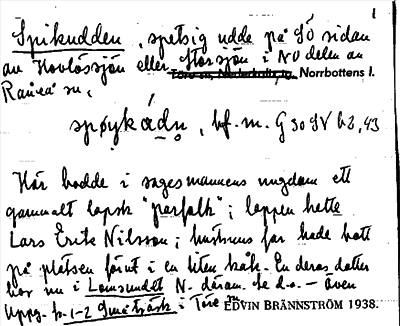 1
Spikudden, spetsig udde på SÖ sidan
av Hovlössjön eller Storsjön i NV delen av
Töre sn, Nederkalix tg, Norrbottens l.
Råneå sn.
spøykádn, bf. m. G 30 SV b 2, 43
Här bodde i sagesmannens ungdom ett
gammalt lapsk "parfolk"; lappen hette
Lars Erik Nilsson; hustruns far hade bott
på platsen förut i en liten kåk. En deras dotter
bor nu i Lomsundet N. därom. Se d.o. – även
uppg. fr. 1-2 Småträsk i Töre sn
EDVIN BRÄNNSTRÖM 1938.